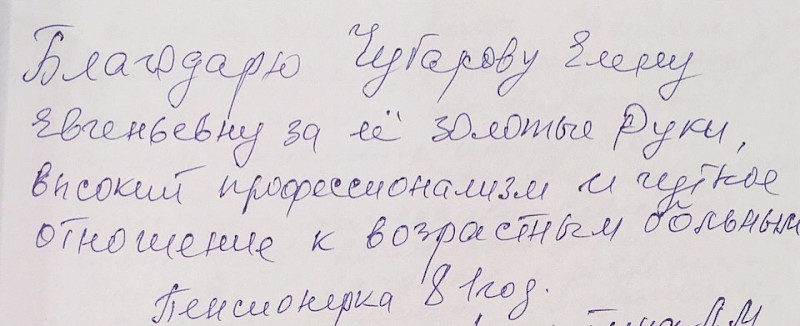 Благодарю Чубарову Елену
Евгеньевну за её золотые Руки,
высокий профессионализм и чуткое
отношение к возрастным больным
Пенсионерка 81 год.
Л.М